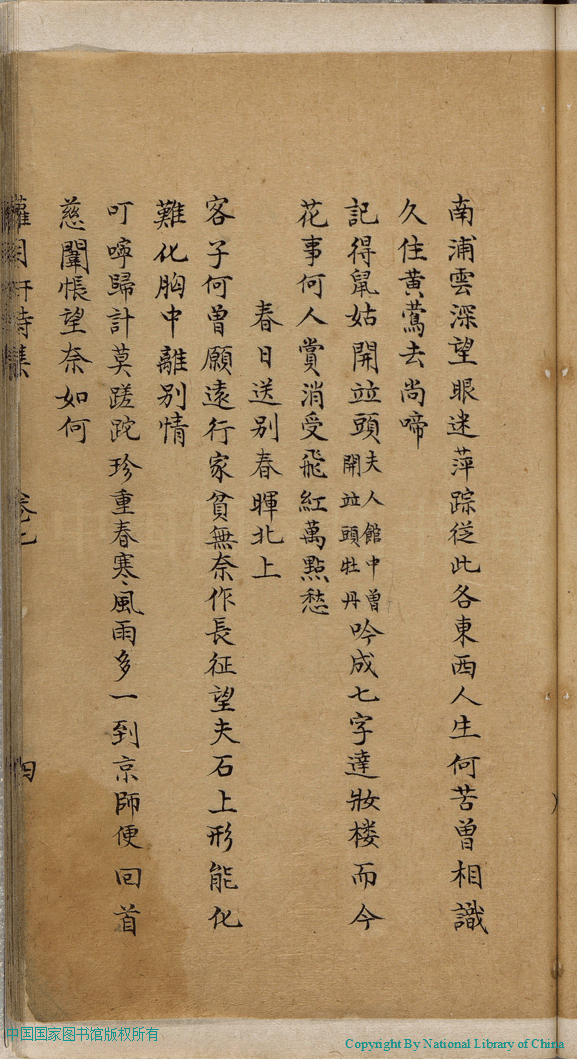 南浦雲深望眼迷萍踪從此各東西人生何苦曾相識
久住黃鶯去尚啼
記得鼠姑開竝頭夫人館中曾開竝頭牡丹吟成七字達妝樓而今
花事何人賞消受飛紅萬點愁
春日送別春暉北上
客子何曾願遠行家貧無奈作長征望夫石上形能化
難化胸中離別情
叮嚀歸計莫蹉跎珍重春寒風雨多一到京師便回首
慈闈悵望奈如何
詩集
四
中国国家图书馆版权所有
Copyright By National Library of China